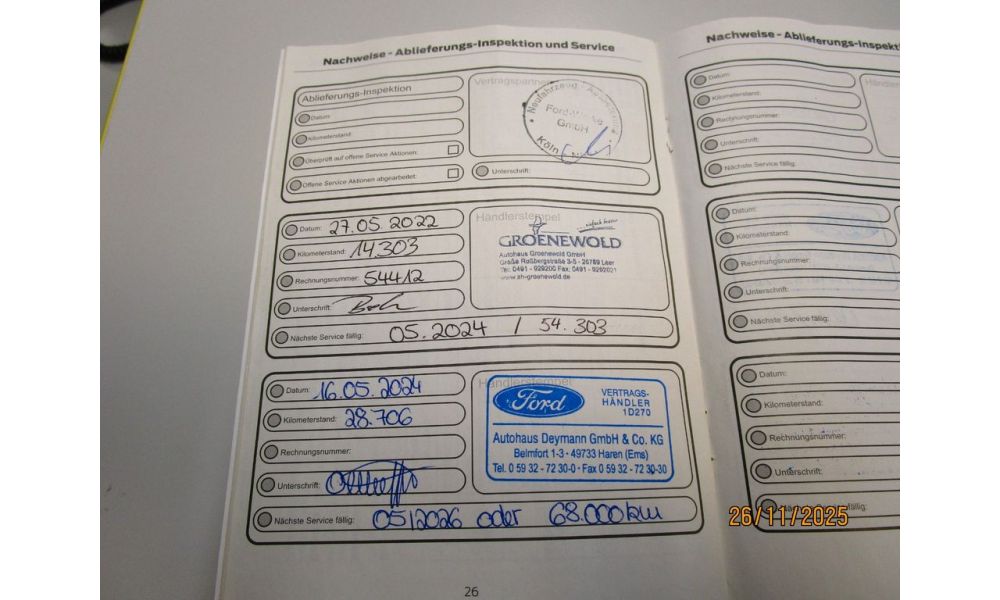 Nachweise - Ablieferungs-Inspektion und Service
Ablieferungs-Inspektion
Datum:
Kilometerstand:
Überprüft auf offene Service Aktionen:
Offene Service Aktionen abgearbeitet:
Vertragspartner
Neufahrzeug
Ford-Werke
GmbH
Köln
Unterschrift:
Datum: 27.05.2022
Kilometerstand: 14.303
Rechnungsnummer: 54412
Unterschrift:
Nächste Service fällig: 05.2024 / 54.303
Händlerstempel
GROENEWOLD
Autohaus Groenewold GmbH
Große Roßbergstraße 3-5 - 26789 Leer
Tel: 0491 - 929200 Fax: 0491 - 9292021
www.ah-groenewold.de
Datum: 16.05.2024
Kilometerstand: 28.706
Rechnungsnummer:
Unterschrift:
Nächste Service fällig: 05/2026 oder 68.000 km
Händlerstempel
Ford
VERTRAGS-
HÄNDLER
1D270
Autohaus Deymann GmbH & Co. KG
Belmfort 1-3 - 49733 Haren (Ems)
Tel. 0 59 32 - 72 30-0 - Fax 0 59 32 - 72 30-30
26
Nachweise - Ablieferungs-Inspekt
Datum:
Kilometerstand:
Rechnungsnummer:
Unterschrift:
Nächste Service fällig:
Datum:
Kilometerstand:
Rechnungsnummer:
Unterschrift:
Nächste Service fällig:
Datum:
Kilometerstand:
Rechnungsnummer:
Unterschrift:
fällig:
26/11/2025